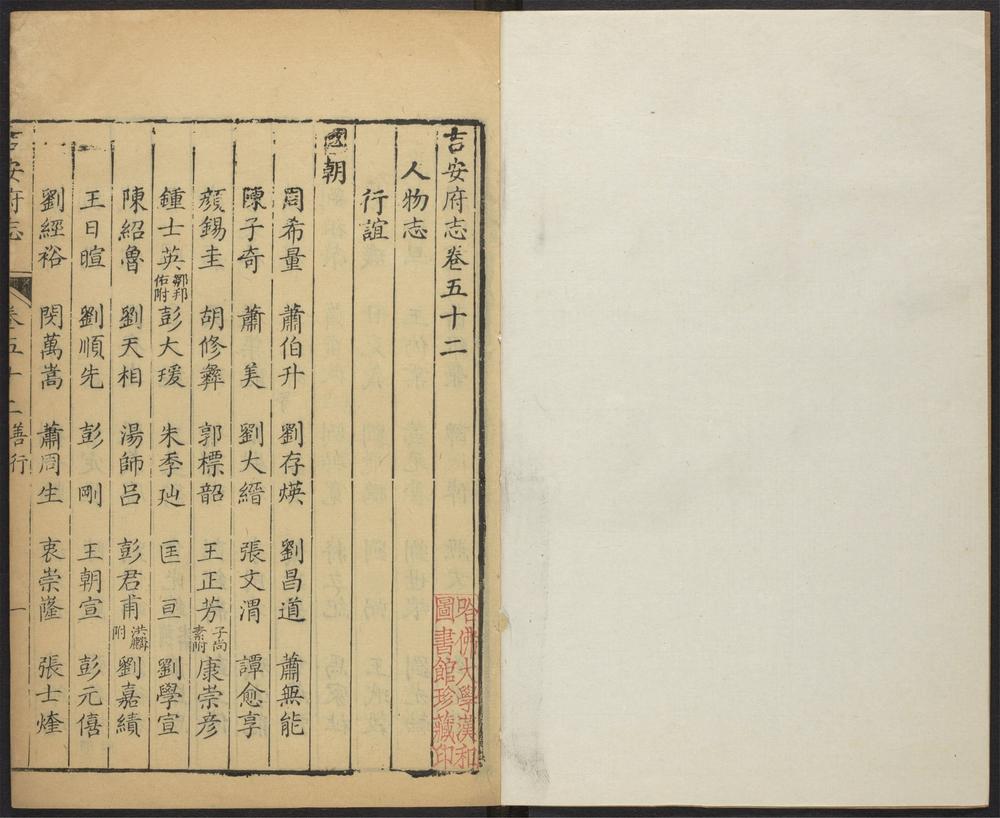 吉安府志卷五十二
人物志
行誼
國朝
周希量 蕭伯升 劉存煐 劉昌道 蕭無能
陳子奇 蕭美 劉大縉 張文渭 譚愈享
顏錫圭 胡修彝 郭標韶 王正芳子尚素附 康崇彦
鍾士英鄒邦佑附 彭大瑗 朱季𤣱 匡亘 劉學宣
陳紹魯 劉天相 湯師吕 彭君甫洪麟附 劉嘉績
王日暄 劉順先 彭剛 王朝宣 彭元僖
劉經裕 閔萬嵩 蕭周生 衷崇隆 張士煃
吉安府志 卷五十二 善行 一
哈佛大學漢和
圖書館珍藏印